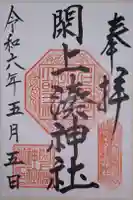 奉拝
閖上湊神社
令和六年五月五日